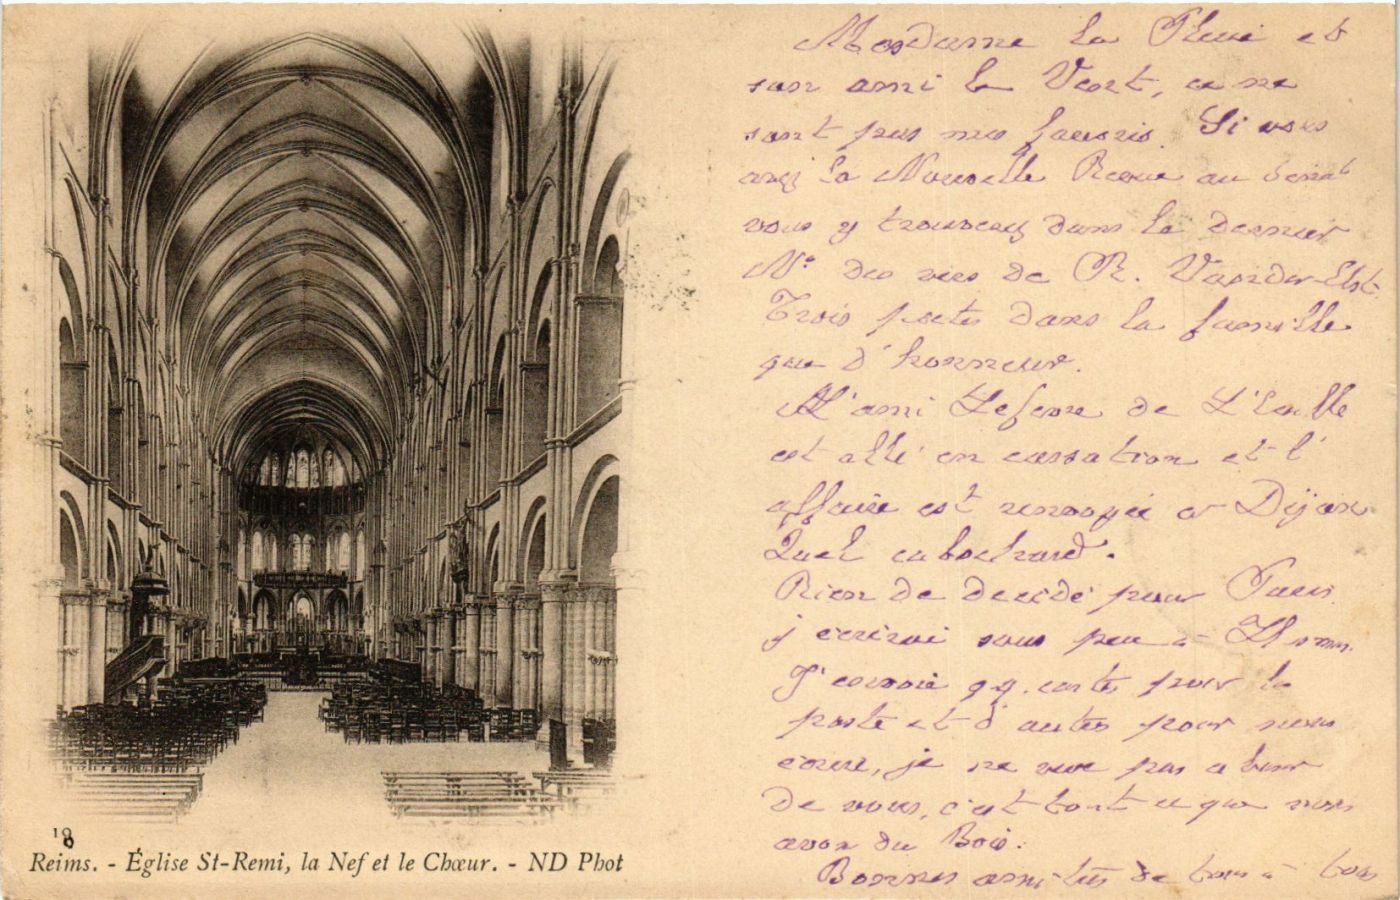 Madame la Pluie et
son ami le Vent, ce ne
sont pas mes favoris. Si vous
avez la Nouvelle Revue au
vous y trouverez dans le dernier
N° des vers de R. Vander-Elst.
Trois poetes dans la famille
que d'honneur.
L'ami de
est allé en cassation et l'
affaire est renvoyée à Dijon
Quel cabochard.
Rien de decidé pour Paris
j'ecrirai sous peu à
J'envoie qq. cartes pour la
poste et d'autes pour nous
ecrire, je ne veux pas abuser
de vous, c'est tout ce que nous
avon du Bois.
Bonnes amitiés de tous à tous
10
Reims. - Église St-Remi, la Nef et le Chœur. - ND Phot